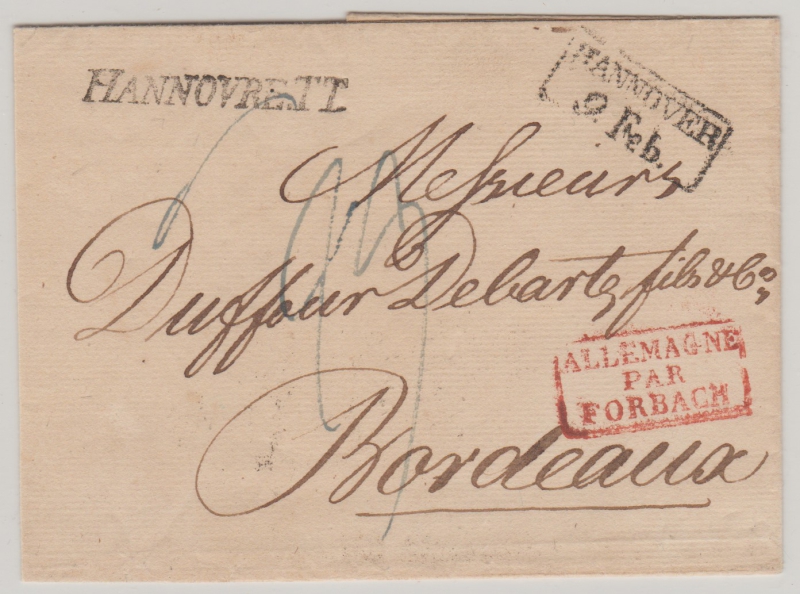 HANNOVRE.TT
HANNOVER
9 Feb.
Messieurs
Duffour Debarte fils & Co,
ALLEMAGNE
PAR
FORBACH
Bordeaux